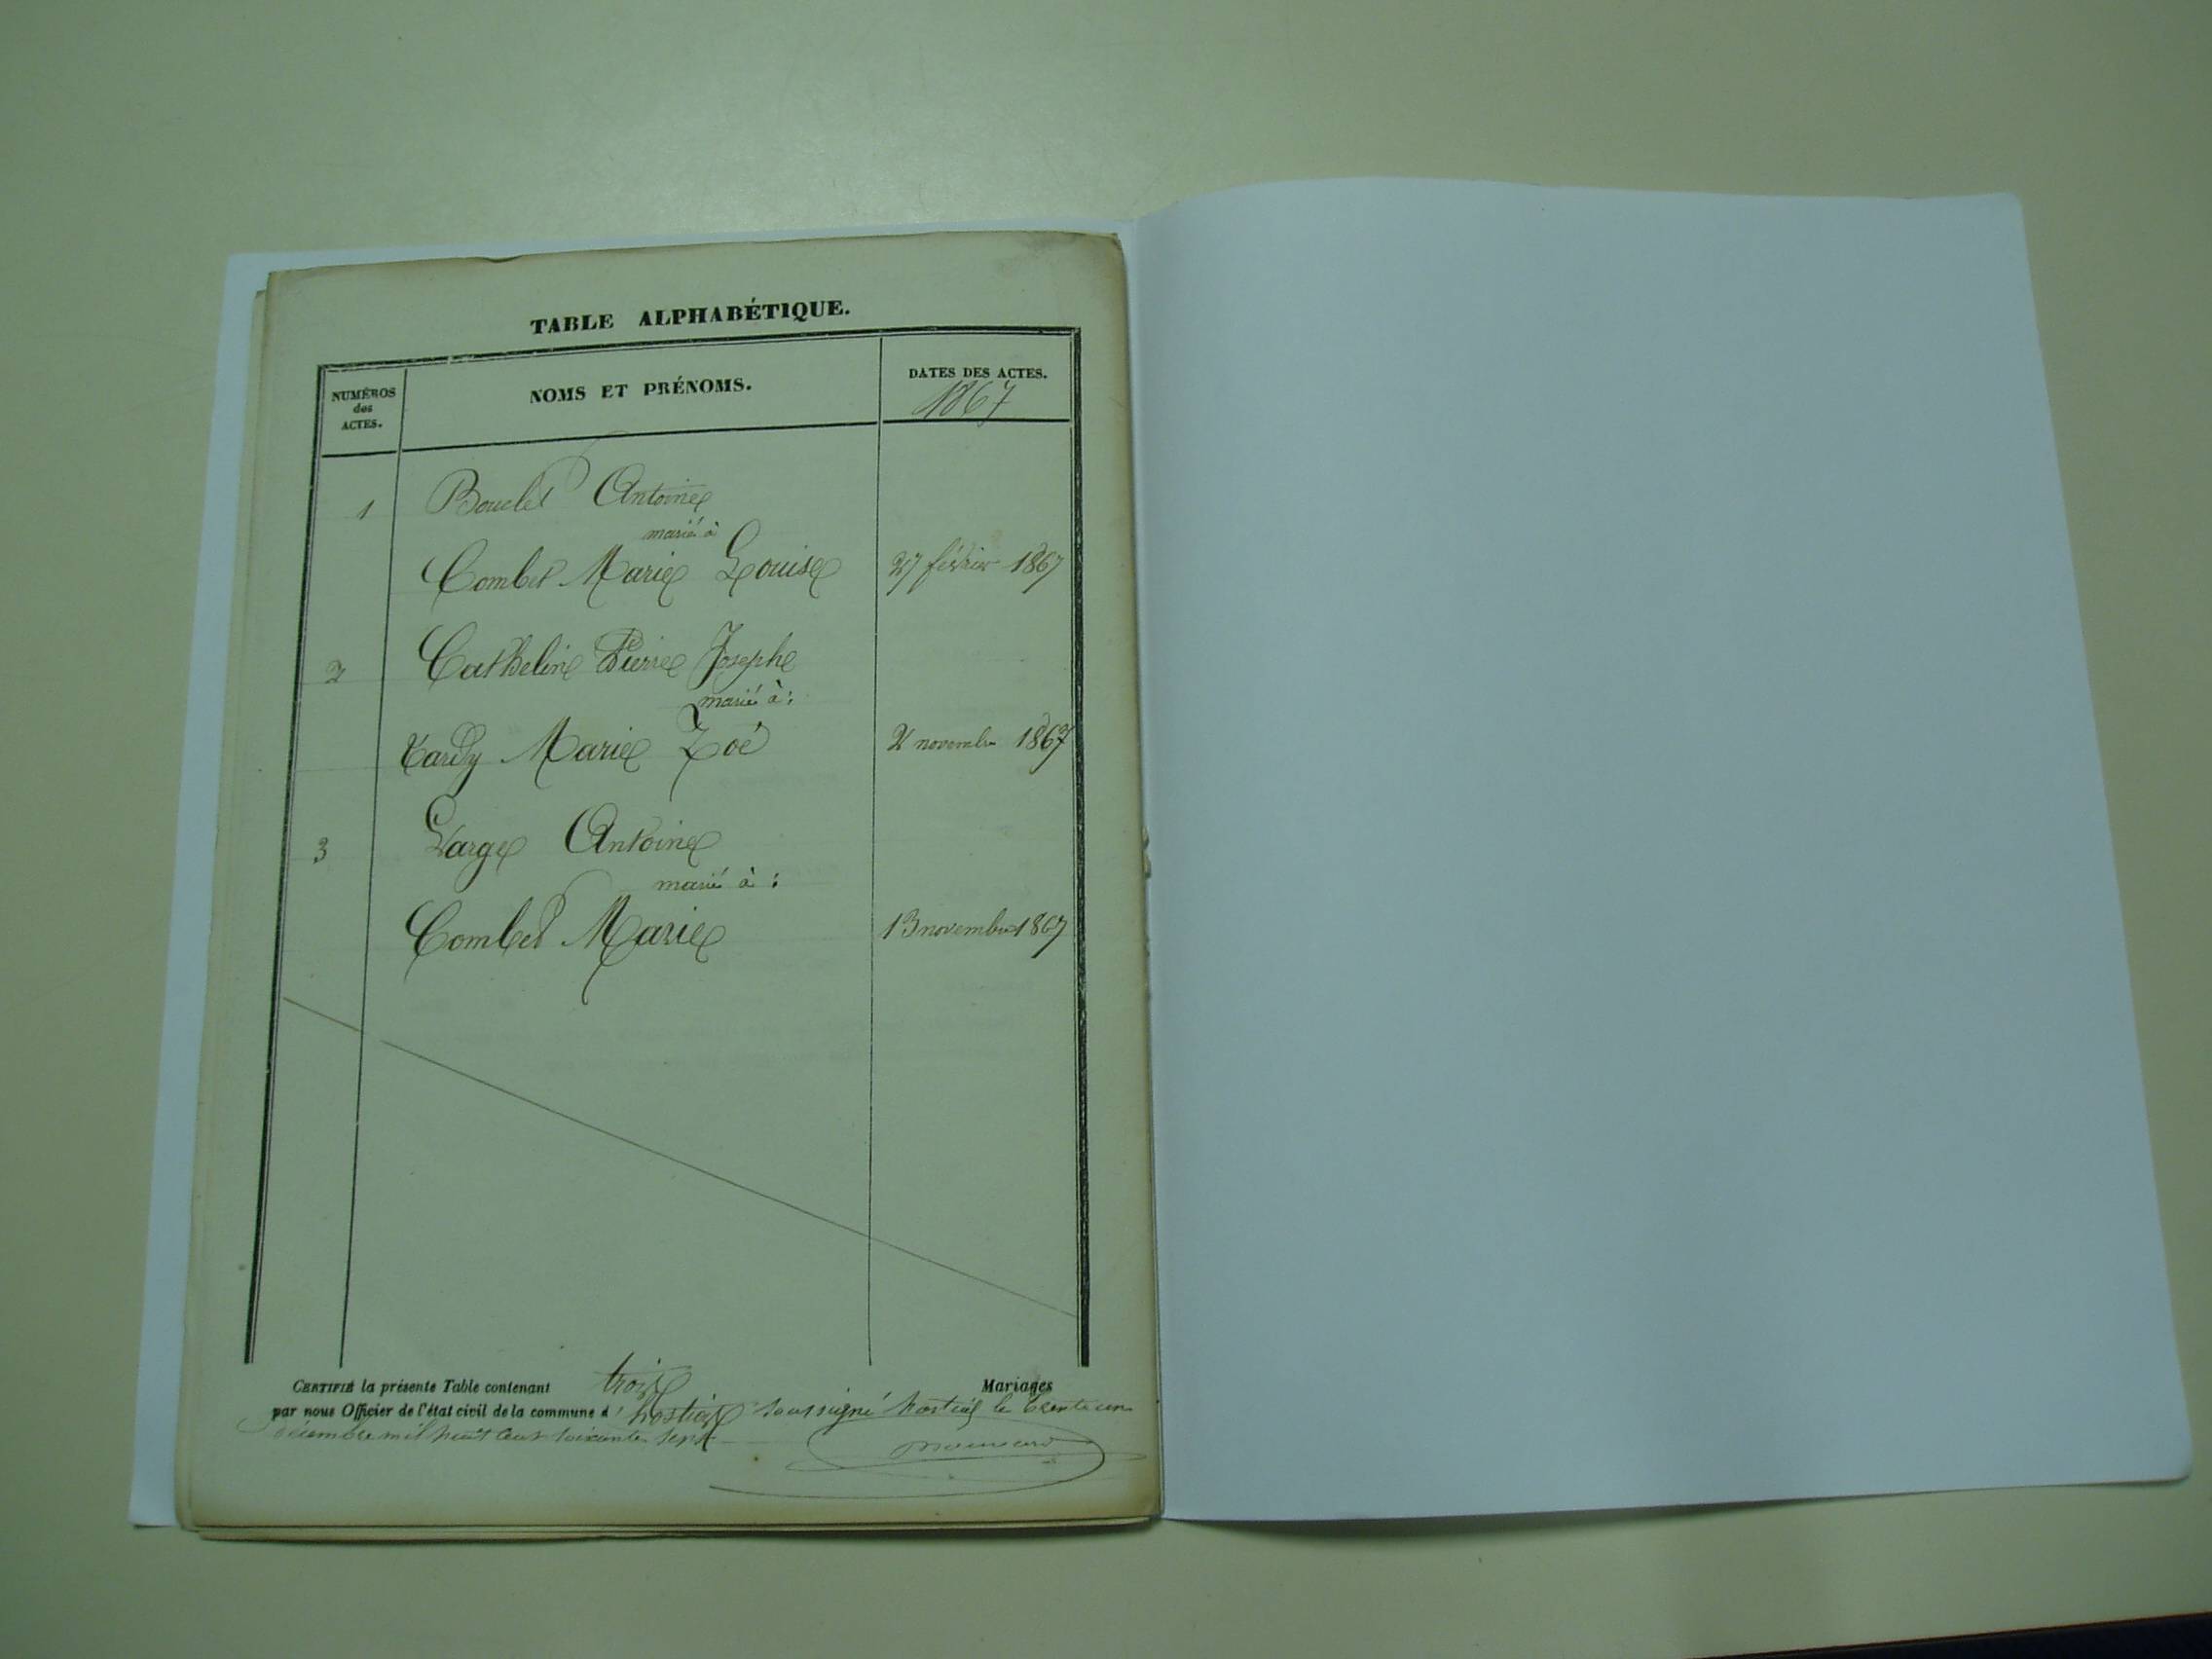 TABLE ALPHABÉTIQUE.
NUMÉROS
des
ACTES.
NOMS ET PRÉNOMS.
DATES DES ACTES.
1867
1 Bouclet Antoine
marié à
Combet Marie Louise 27 février 1867
2 Catheline Pierre Josephe
marié à :
Tardy Marie Zoé 2 novembre 1867
3 Large Antoine
marié à :
Combet Marie 13 novembre 1867
CERTIFIÉ la présente Table contenant trois Mariages
par nous Officier de l'état civil de la commune d'hostiaz soussigné hostiaz le trente un
décembre mil huit cent soixante sept